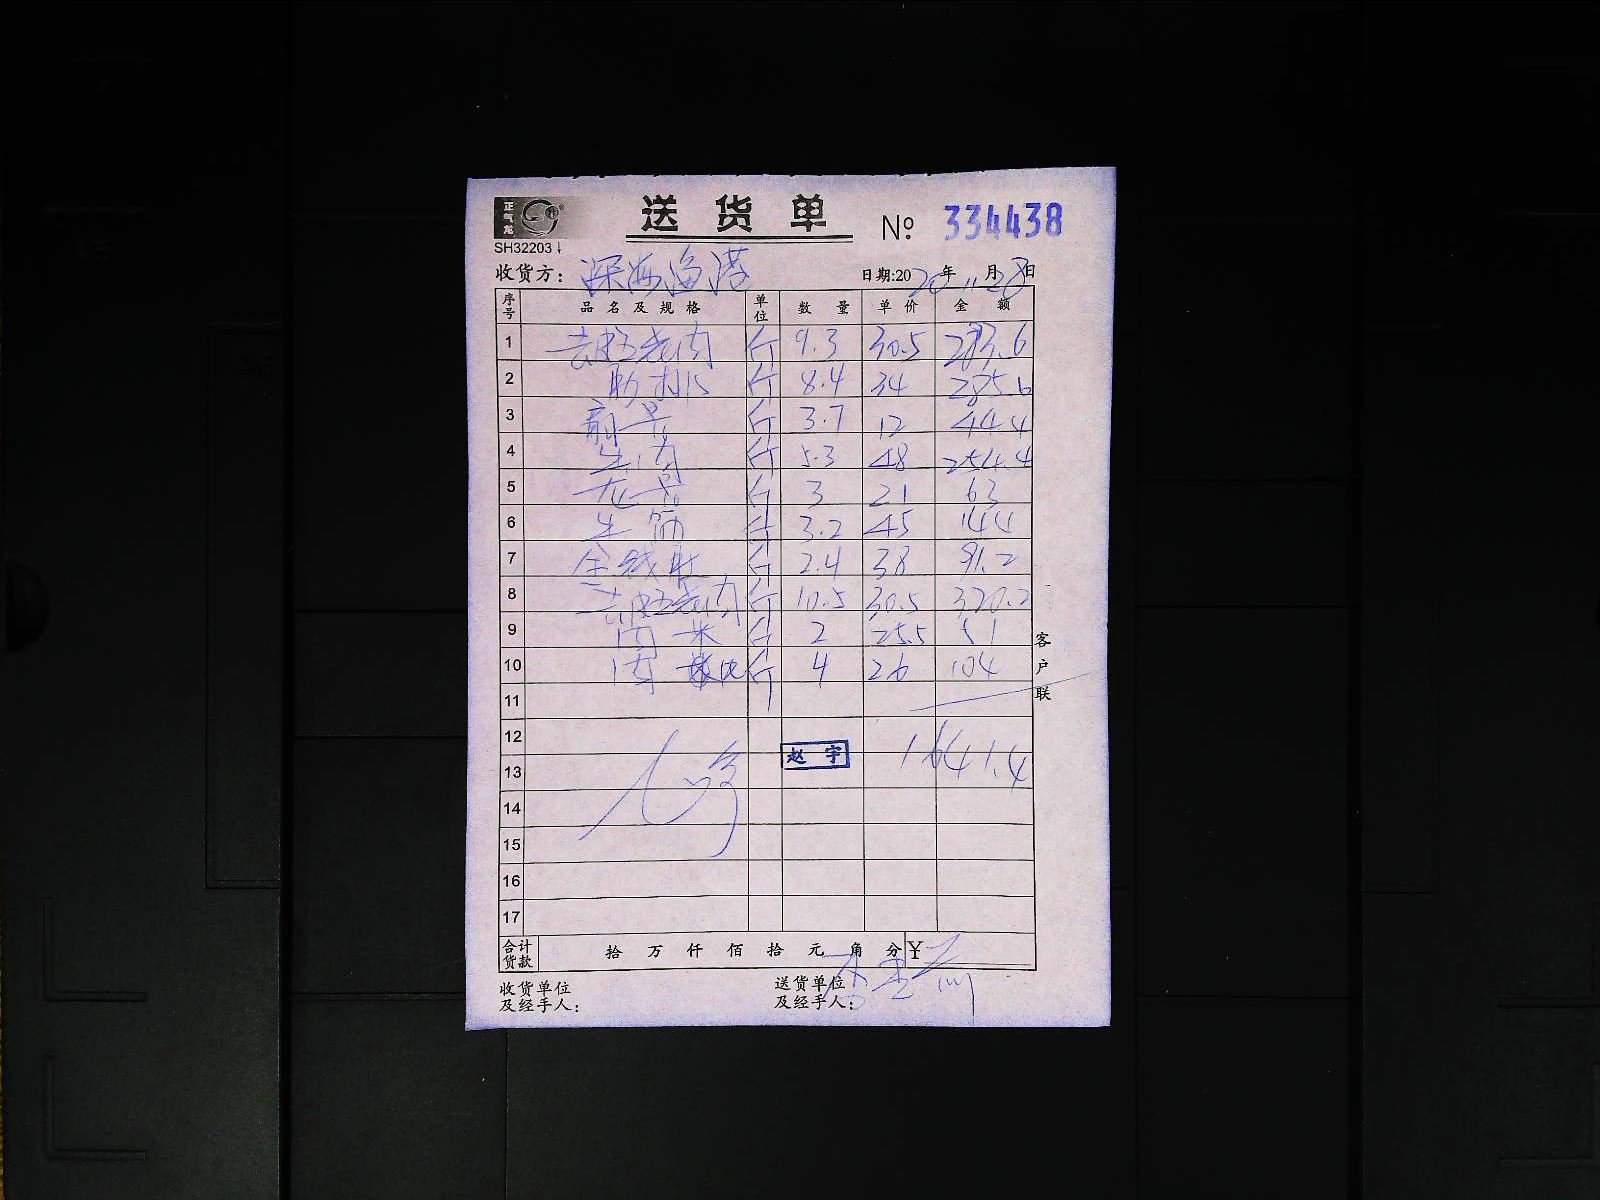 正气龙
送货单 № 334438
SH32203
收货方: 深海渔港 日期:2020年11月28日
序号 品名及规格 单位 数量 单价 金额
1 去皮五花肉 斤 9.3 30.5 283.6
2 肋排 斤 8.4 34 285.6
3 前骨 斤 3.7 12 44.4
4 牛肉 斤 5.3 48 254.4
5 龙骨 斤 3 21 63
6 牛筋 斤 3.2 45 144
7 金钱肚 斤 2.4 38 91.2
8 去皮五花肉 斤 10.5 30.5 320.2
9 肉 斤 2 25.5 51
10 肉 斤 4 26 104
11
12
赵宇 1641.4
13
14
15
16
17
合计货款 拾 万 仟 佰 拾 元 角 分 ¥
收货单位及经手人: 送货单位及经手人:
客户联